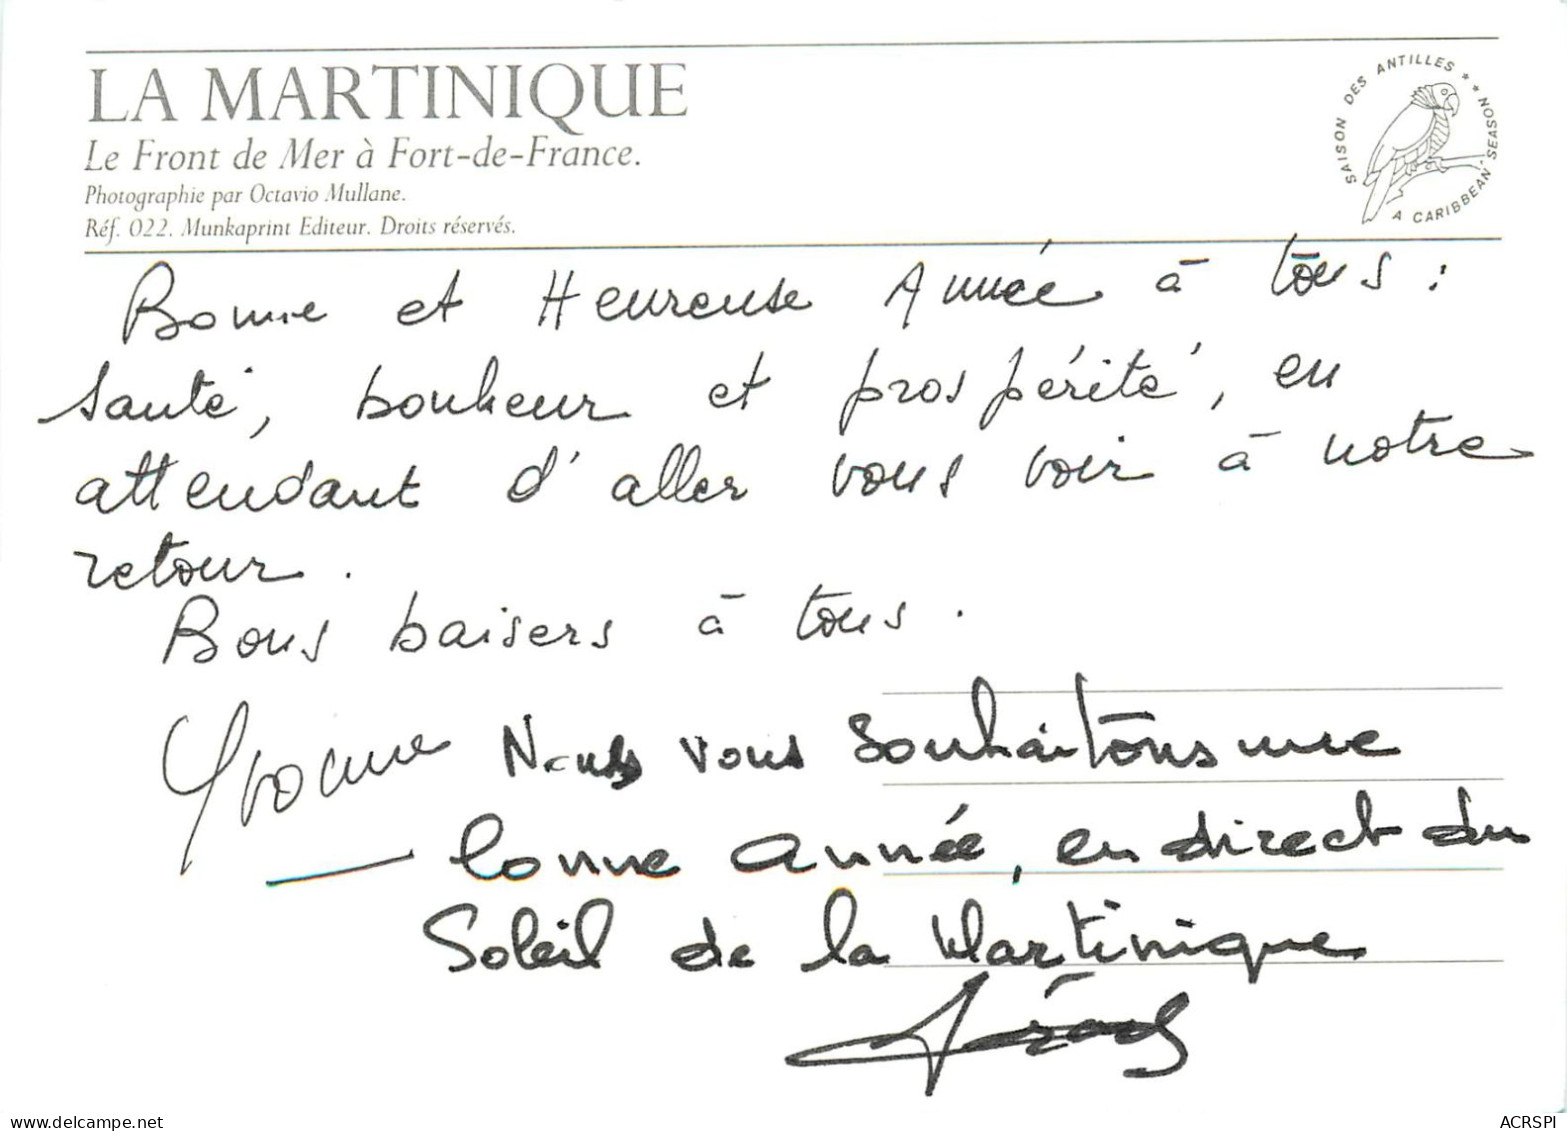 LA MARTINIQUE
Le Front de Mer à Fort-de-France.
Photographie par Octavio Mullane.
Réf. 022. Munkaprint Editeur. Droits réservés.
SAISON DES ANTILLES ** A CARIBBEAN SEASON
Bonne et Heureuse Année à tous :
santé, bonheur et prospérité, en
attendant d'aller vous voir à notre
retour.
Bons baisers à tous.
Yvonne
Nous vous souhaitons une
bonne année, en direct du
Soleil de la Martinique
www.delcampe.net
ACRSPI